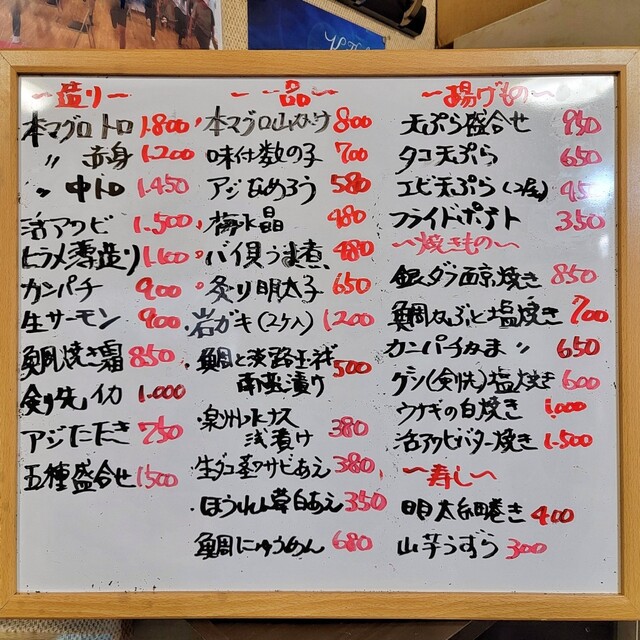 〜造り〜
本マグロ トロ 1.800
〃 赤身 1.200
〃 中トロ 1.450
活アワビ 1.500
ヒラメ薄造り 1.100
カンパチ 900
生サーモン 900
鯛焼き霜 850
剣先イカ 1.000
アジたたき 750
五種盛合せ 1500
〜一品〜
本マグロ山かけ 800
味付数の子 700
アジなめろう 580
梅水晶 480
バイ貝うま煮 480
炙り明太子 650
岩ガキ(2ケ入) 1200
鯛と淡路玉ネギ
南蛮漬け 500
泉州水ナス
浅漬け 380
生ダコ茎ワサビあえ 380
ほうれん草白あえ 350
鯛にゅうめん 680
〜揚げもの〜
天ぷら盛合せ 950
タコ天ぷら 650
エビ天ぷら(2尾) 450
フライドポテト 350
〜焼きもの〜
銀ダラ西京焼き 850
鯛かぶと塩焼き 700
カンパチかま〃 650
ゲソ(剣先)塩焼き 600
ウナギの白焼き 1,000
活アワビバター焼き 1.500
〜寿し〜
明太子細巻き 400
山芋うずら 300